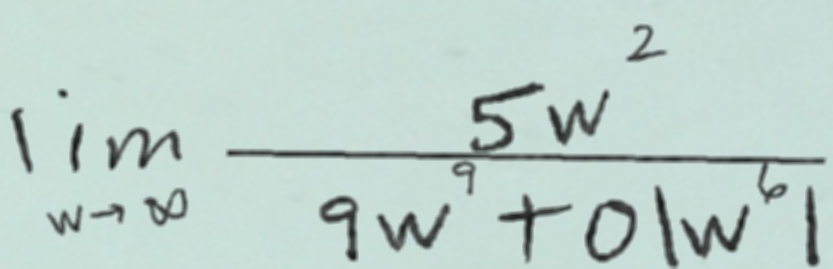 lim_{w→∞} \frac{5w^2}{9w^9+0|w^6|}